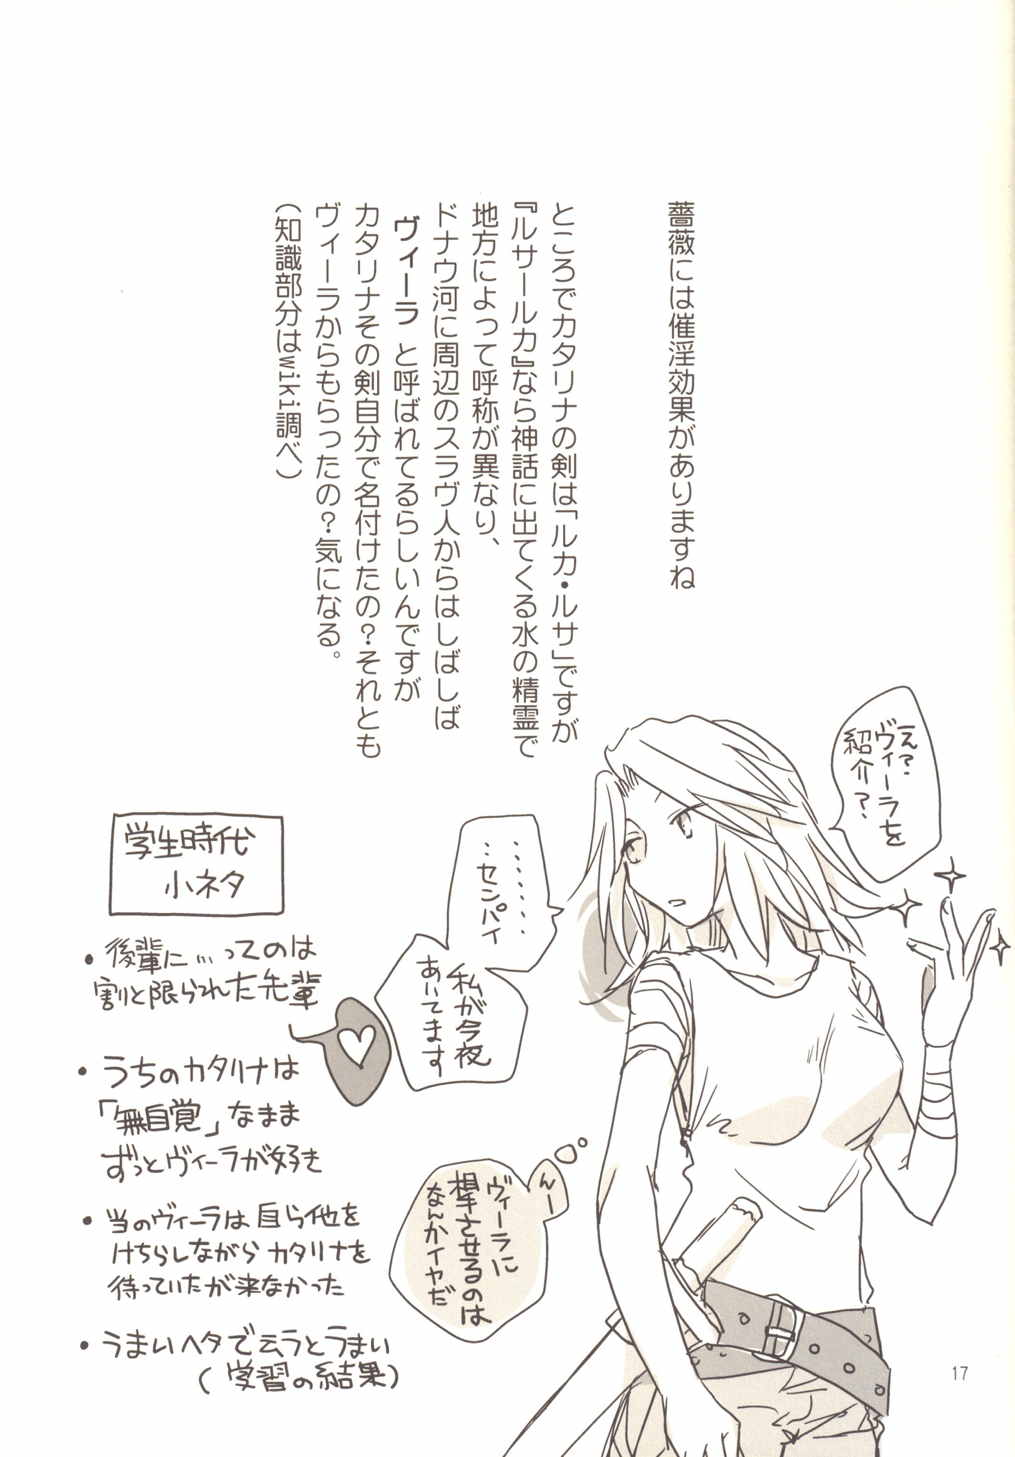 薔薇には催淫効果がありますね
ところでカタリナの剣は「ルカ・ルサ」ですが
『ルサールカ』なら神話に出てくる水の精霊で
地方によって呼称が異なり、
ドナウ河に周辺のスラヴ人からはしばしば
ヴィーラ と呼ばれてるらしいんですが
カタリナその剣自分で名付けたの？それとも
ヴィーラからもらったの？気になる。
（知識部分はwiki調べ）
え？
ヴィーラを
紹介？
・・・・・・
・・センパイ
私が今夜
あいてます
んー
ヴィーラに
相手させるのは
なんかイヤだ
学生時代
小ネタ
・後輩に...ってのは
割と限られた先輩
・うちのカタリナは
「無自覚」なまま
ずっとヴィーラが好き
・当のヴィーラは自ら他を
けちらしながらカタリナを
待っていたが来なかった
・うまいヘタで云うとうまい
(学習の結果)
17